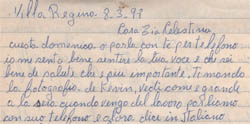 Villa Regina 8.3.98
Cara Zia Celestina
questa domenica o parlato con te per telefono
io me sento bene sentire la tua voce e che sei
bene di salute che è più importante, Ti mando
la fotografia di Kevin, vedi come è grande
a la sera quando vengo del lavoro parliamo
con suo telefono e alora dice in Italiano